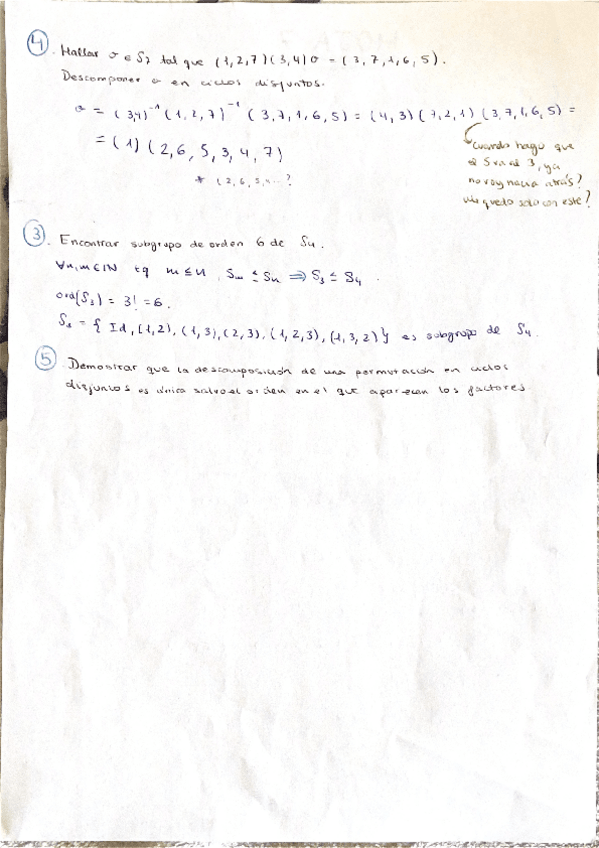 4. Hallar σ ∈ S7 tal que (1,2,7)(3,4)σ = (3,7,1,6,5).
Descomponer σ en ciclos disjuntos.
σ = (3,4)⁻¹ (1,2,7)⁻¹ (3,7,1,6,5) = (4,3)(7,2,1)(3,7,1,6,5) =
= (1)(2,6,5,3,4,7)
* (2,6,5,4...?
cuando hago que
el 5 va al 3, ya
no voy hacia atrás?
me quedo solo con este?
3. Encontrar subgrupo de orden 6 de S4.
∀n,m∈ℕ tq m≤n, Sm ≤ Sn ⟹ S3 ≤ S4.
ord(S3) = 3! = 6.
= { Id, (1,2), (1,3), (2,3), (1,2,3), (1,3,2)} es subgrupo de S4.
5. Demostrar que la descomposición de una permutación en ciclos
disjuntos es única salvo el orden en el que aparecen los factores